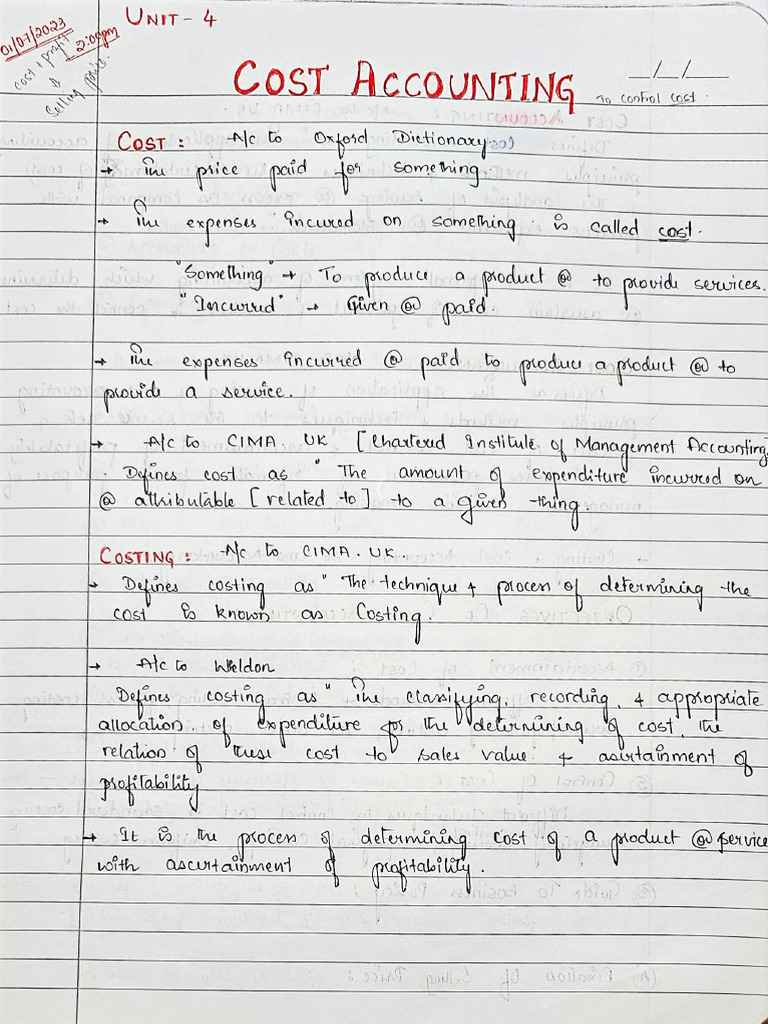 01/07/2023
2:00pm
cost + profit
&
Selling price.
UNIT - 4
COST ACCOUNTING
__/__/__
To control cost.
COST : A/c to Oxford Dictionary
→ The price paid for something.
→ The expenses incured on something is called cost.
"Something" → To produce a product @ to provide services.
"Incurred" → Given @ paid.
→ The expenses incurred @ paid to produce a product @ to
provide a service.
→ A/c to CIMA. UK [Chartered Institule of Management Accounting
Defines cost as " The amount of expenditure incurred on
@ attributable [related to] to a given thing.
COSTING : A/c to CIMA. UK.
→ Defines costing as " The technique & process of determining the
cost is known as Costing.
→ A/c to Weldon
Defines costing as " The classifying, recording, & appropriate
allocation of expenditure for the determining of cost, the
relation of these cost to sales value & asertainment of
profitability
→ It is the process of determining cost of a product @ service
with ascertainment of profitability.